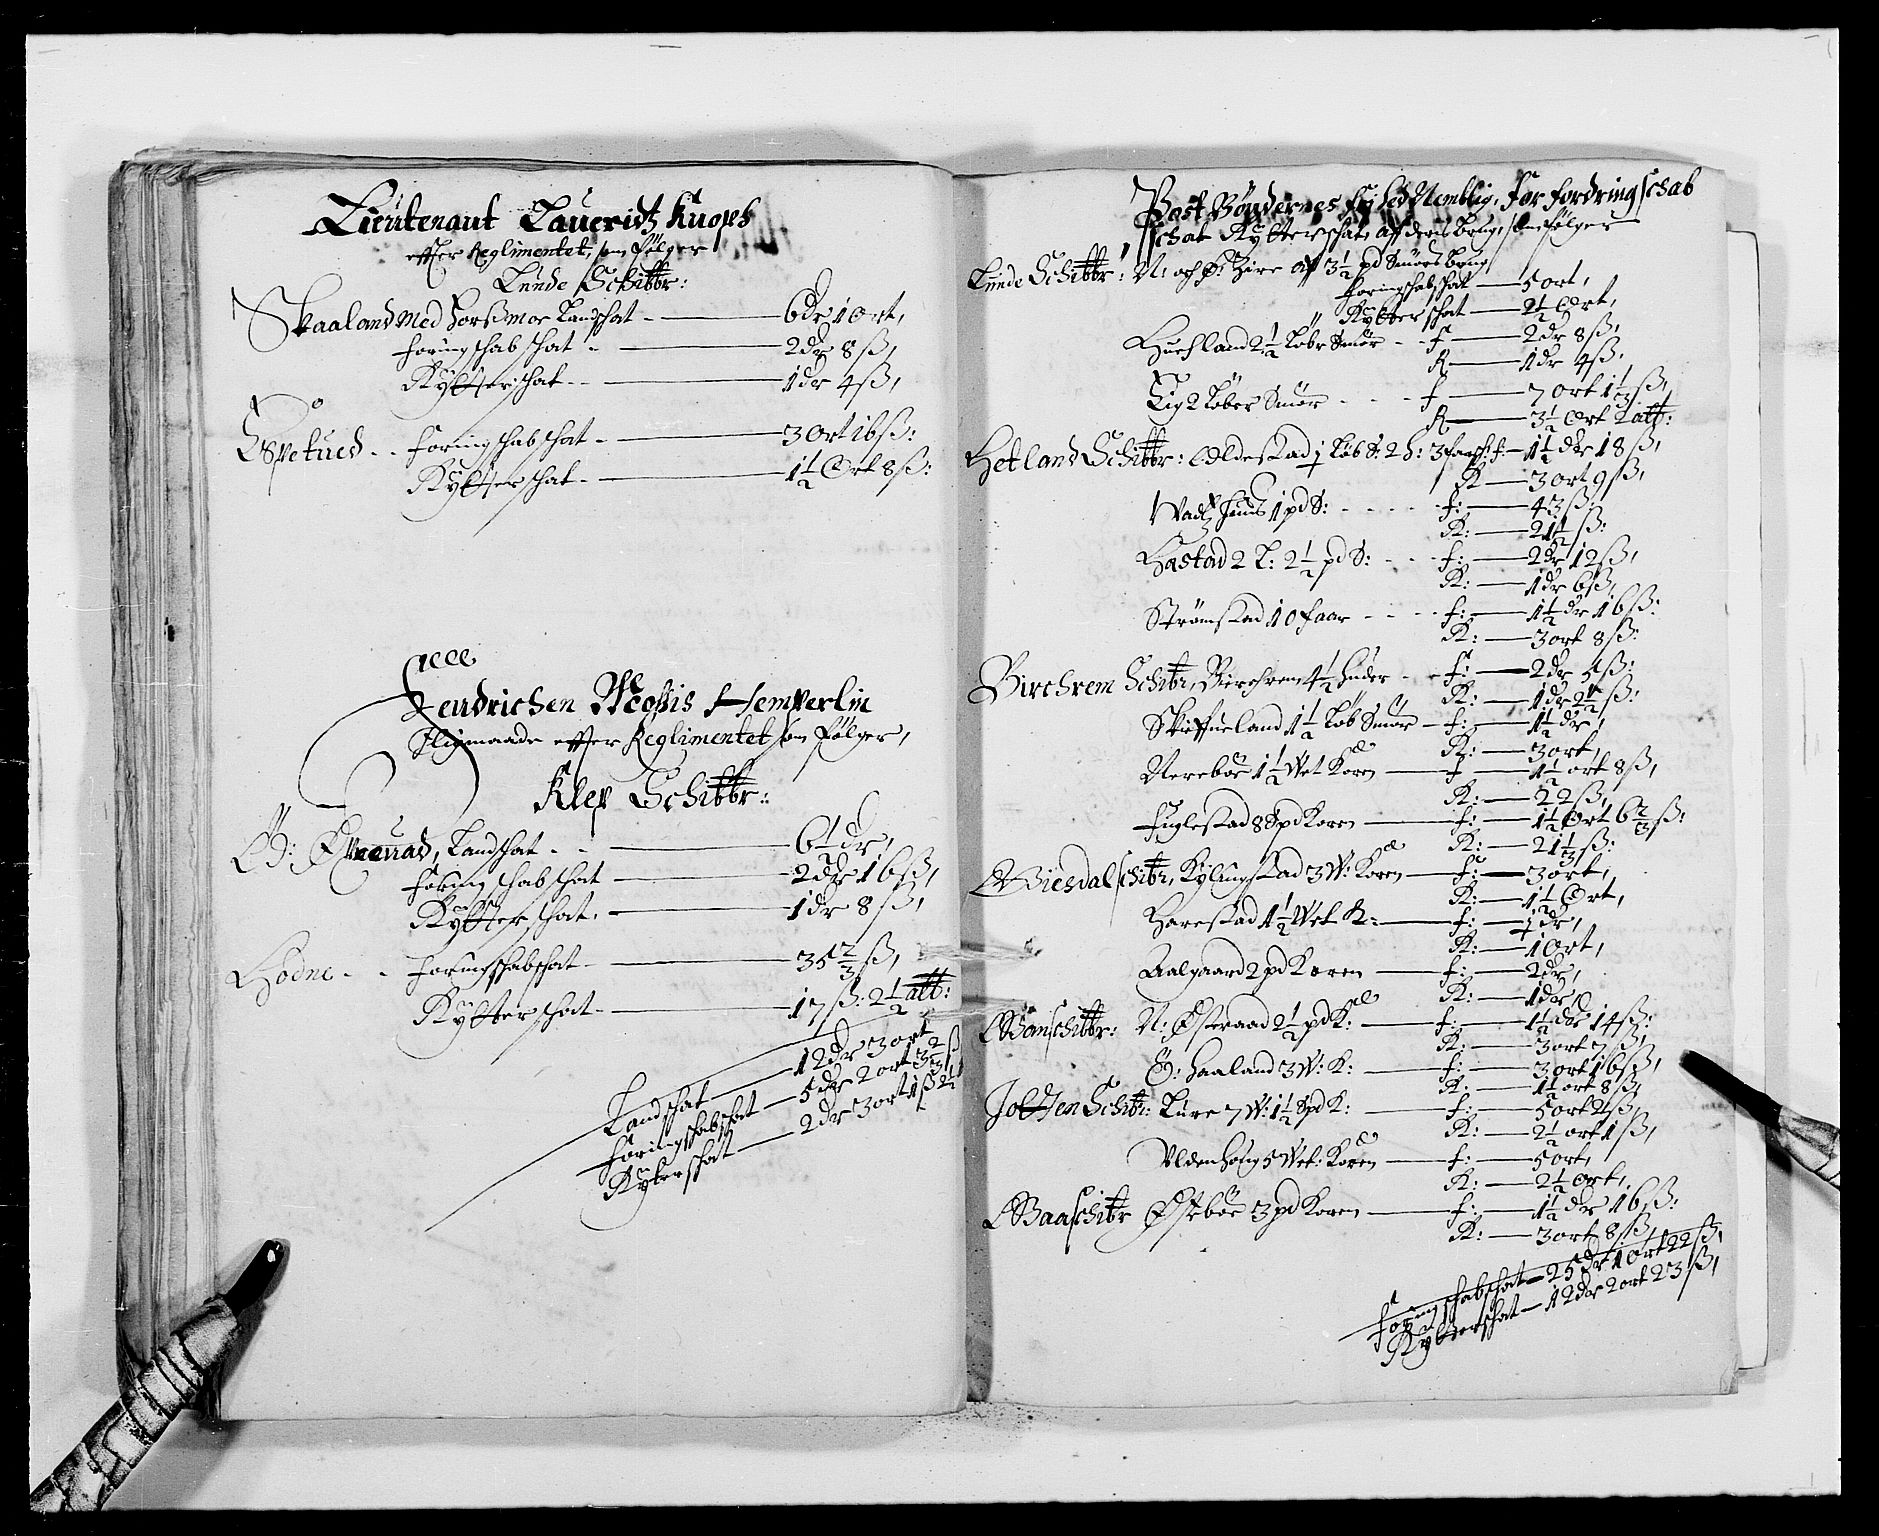 Lieutenant Laueridtz Knophs
effter Reglimentet, som følger
Lunde Schibbr:
Skaaland Med Horsmoe Landschat — 6 dr 1 Ort,
Foringschabschat — 2 dr 8 ß,
Rytterschat — 1 dr 4 ß,
Espetued - - Foringschabschat — 3 Ort 16 ß:
Rytterschat — 1½ Ort 8 ß:
Fendrichen Hemperlin
Sligmaade effter Reglimentet som følger,
Klep Schibbr:
Landschat - - 6½ dr,
Foringschabschat — 2 dr 16 ß,
Rytterschat — 1 dr 8 ß,
Hodne - - Foringschabschat — 35⅔ ß,
Rytterschat — 17 ß: 2½ alb:
Landschat — 12 dr 3 ort
Foringschabschat — 5 dr 2 ort 3⅔ ß
Rytterschat — 2 dr 3 ort 1 ß 2½
Post Bøndernes Nemblig, Forfordringschab
schat Rytterschat, aff deris brug, som følger
Lunde Schibbr: N: och Ø: Eire af 3½ pd Smørs brug
Foringschabschat — 5 ort,
Rytterschat — 2½ Ort,
Huesland 2½ Løbr Smør - - F — 2 dr 8 ß,
R — 1 dr 4 ß,
Eig 2 Løber Smør - - - F — 7 ort 1⅓ ß,
R — 3½ Ort 2 alb:
Hetland Schibbr: Oldestad 1 Løb S: 2 h: 3 faarsk: f: — 1½ dr 18 ß,
R — 3 ort 9 ß,
1 pd S: - - - - f: — 43 ß:
R: — 21½ ß:
Hastad 2 L: 2½ pd S: - - - f: — 2 dr 12 ß,
R: — 1 dr 6 ß,
Strømstad 10 faar - - - f: — 1½ dr 16 ß:
R: — 3 ort 8 ß:
Birchrem Schibr, Birchrem 4½ huder - - f: — 2 dr 5 ß:
R: — 1 dr 2½ ß:
Skieffueland 1½ Løb Smør — f: — 1½ dr,
R: — 3 ort,
Nereboe 1½ Wet Koren — f — 1½ ort 8 ß,
R: — 22 ß,
Fuglestad 8 Spd Koren — f: — 1½ Ort 6⅔ ß:
R: — 21⅓ ß:
Giesdal schibr, Kylingstad 3 W: Koren — f: — 3 ort,
R: — 1½ Ort,
Harestad 1½ Wet K: — f: — ½ dr,
R: — 1 Ort,
Aalgaard 2 pd Koren — f: — 2 dr,
R: — 1 dr,
N: Østraad 2½ pd K: — f: — 1½ dr 14 ß:
R: — 3 ort 7 ß,
Ø: Haaland 3 W: K: — f: — 3 ort 16 ß,
R: — 1½ ort 8 ß,
Joltten Schibr: Lure 7 W: 1½ Spd K: — f: — 5 ort 2 ß,
R: — 2½ ort 1 ß,
Uldenhoug 5 Wet: Koren — f: — 5 ort,
R: — 2½ Ort,
Østeboe 3 pd Koren — f: — 1½ dr 16 ß:
R: — 3 ort 8 ß,
Foringschabschat — 25 dr 1 ort 22 ß,
Rytterschat — 12 dr 2 ort 23 ß,